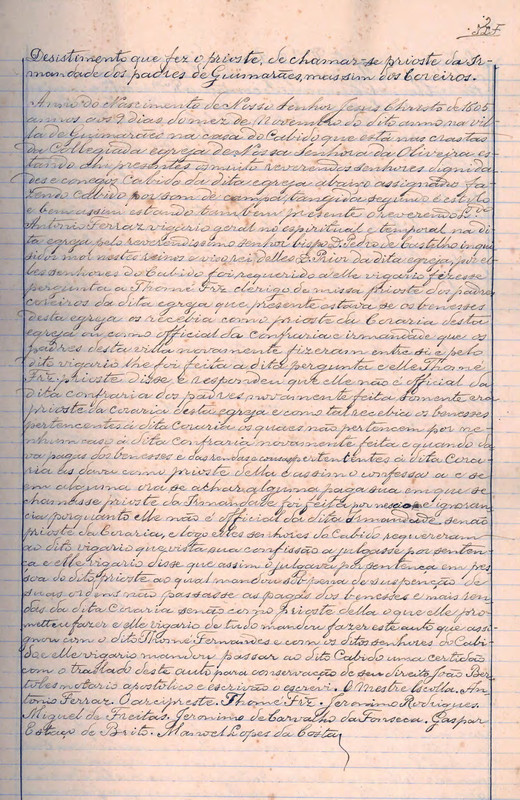 2
Desistimento que fez o prioste, de chamar-se prioste da Ir-
mandade dos padres de Guimarães, mas sim dos Coreiros.
Anno do Nascimento de Nosso Senhor Jesus Christo de 1605
annos aos 9 dias do mez de Novembro do dito anno na vil-
la de Guimarães na casa do Cabido que está nas crastas
da Collegiada egreja de Nossa Senhora da Oliveira es-
tando ahi presentes os muito reverendos senhores dignida-
des e conegos, Cabido da dita egreja abaixo assignado fa-
zendo Cabido por som de campa tangida segundo o estylo
e bem assim estando tambem presente o reverendo
Antonio Ferraz vigario geral no espiritual e temporal na di-
ta egreja pelo reverendissimo senhor bispo D. Pedro de Castilho inqui-
sidor mor nestes reinos e visorei delles D. Prior da dita egreja, por el-
les senhores do Cabido foi requerido a elle vigario fizesse
pergunta a Thomé Frz clerigo de missa prioste dos padres
coreiros da dita egreja que presente estava se os benesses
desta egreja os recebia como prioste da Coraria desta
egreja ou como official da confraria e irmandade que os
padres desta villa novamente fizeram entre si e pelo
dito vigario lhe foi feita a dita pergunta e elle Thomé
Frz prioste disse e respondeu que elle não é official da
dita confraria dos padres novamente feita somente era
prioste da coraria desta egreja e como tal recebia os benesses
pertencentes á dita Coraria os quaes não pertencem por ne-
nhum caso á dita confraria novamente feita e quando da-
va pagas dos benesses e das rendas e cousas pertentintes á dita Cora-
ria as dava como prioste della e assimo confessa a e se
em alguma ora se achar alguma paga sua em que se
chamasse prioste da Irmandade foi feita por neseo e ignoran-
cia porquanto elle não é official da dita Irmandade senão
prioste da Coraria, e logo elles senhores do Cabido requereram
ao dito vigario que vista sua confissão a julgasse por senten-
ça e elle vigario disse que assim o julgava por sentença em pes-
soa do dito prioste ao qual mandou sob pena de suspenção de
suas ordens não passasse as pagas dos benesses e mais ren-
das da dita Coraria senão como Prioste della o que elle pro-
metteu fazer e elle vigario de tudo mandou fazer este auto que assi-
gnou com o dito Thomé Fernandes e com os ditos senhores do Cabi-
do e elle vigario mandou passar ao dito Cabido uma certidão
com o traslado deste auto para conservação de seu direito João Ber-
toles notario apostolico e escrivão o escrevi. O Mestre Escolla. An-
tonio Ferraz. O arcipreste. Thomé Frz. Jeronimo Rodrigues
Miguel de Freitas. Jeronimo de Carvalho da Fonseca. Gaspar
Estaço de Brito. Manoel Lopes da Costa